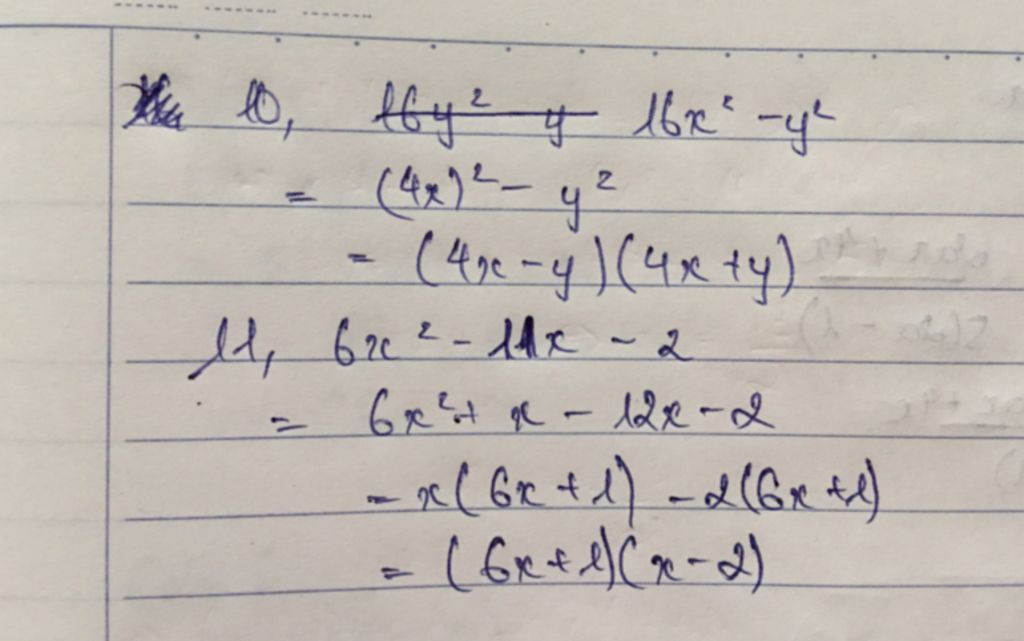 10, 16y² y 16x² - y²
= (4x)² - y²
= (4x - y)(4x + y)
11, 6x² - 11x - 2
= 6x² + x - 12x - 2
= x(6x + 1) - 2(6x + 1)
= (6x + 1)(x - 2)